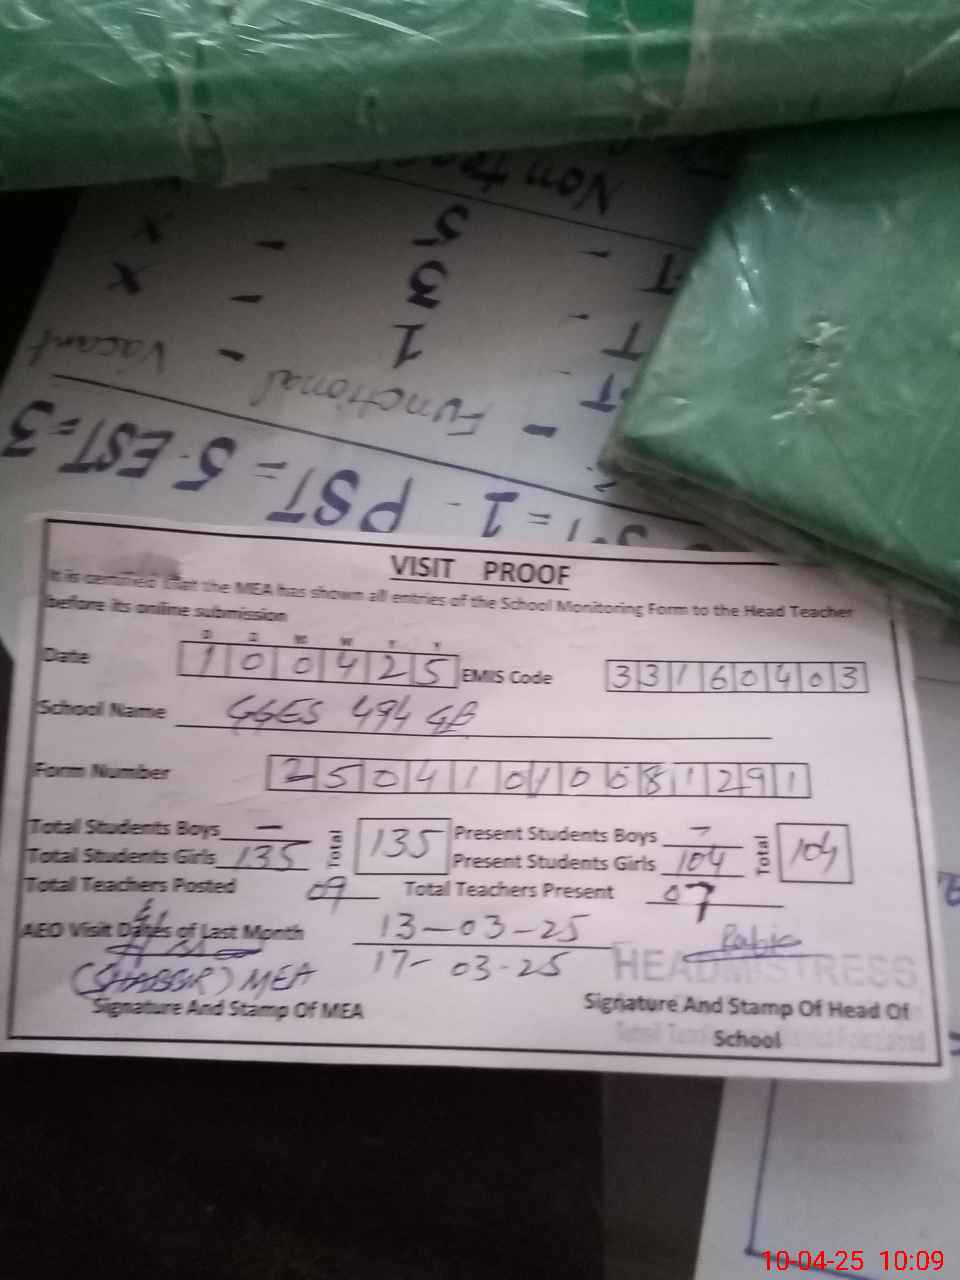 Non
5 - x
3 - x
1 - Vacant
- Functional
= 1 - PST = 5 - EST = 3
VISIT PROOF
It is certified that the MEA has shown all entries of the School Monitoring Form to the Head Teacher
before its online submission
D D M M Y Y
Date 1 0 0 4 2 5 EMIS Code 3 3 1 6 0 4 0 3
School Name GGES 494 GB
Form Number 2 5 0 4 1 0 1 0 0 8 1 2 9 1
Total Students Boys - Total 135 Present Students Boys - Total 104
Total Students Girls 135 Present Students Girls 104
Total Teachers Posted 09 Total Teachers Present 07
AEO Visit Dates of Last Month 13-03-25
17-03-25
Rabia
HEADMISTRESS
(SHABBIR) MEA
Signature And Stamp Of MEA Signature And Stamp Of Head Of
School
10-04-25 10:09